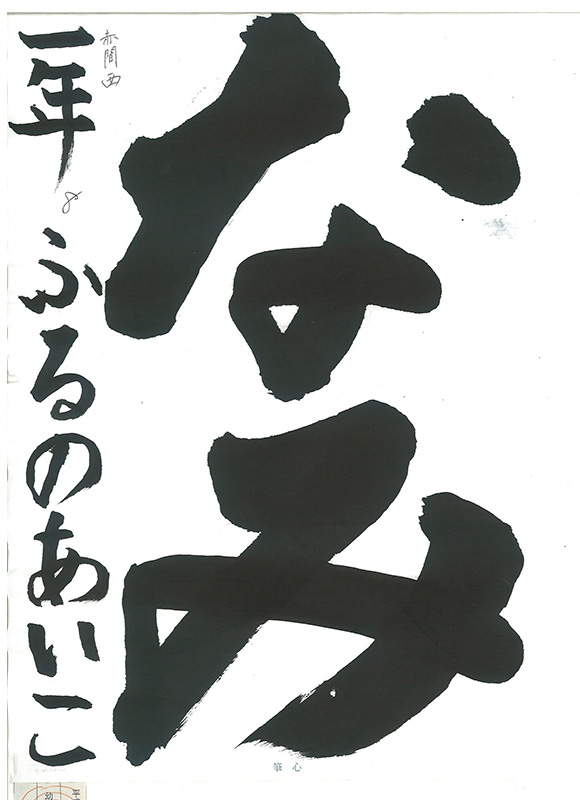 なみ
赤間西
一年 ふるのあいこ
8
心筆
平
幼